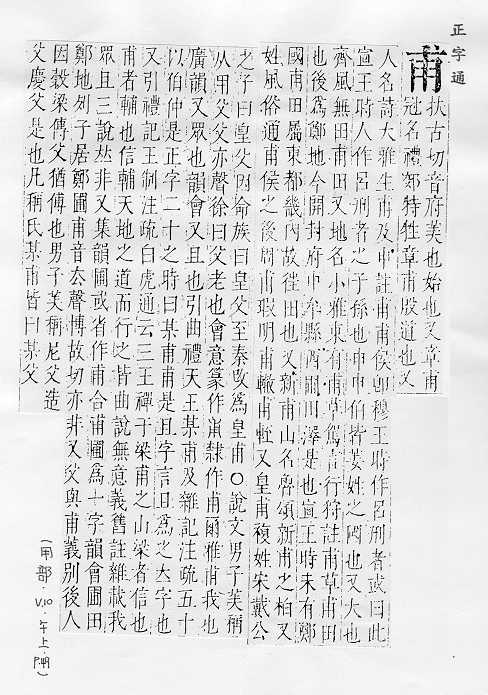 正字通
甫
扶古切音府美也始也又章甫
冠名禮郊特牲章甫殷道也又
人名詩大雅生甫及申註甫甫侯卽穆王時作呂刑者或曰此
宣王時人作呂刑者之子孫也申申伯皆姜姓之國也又大也
齊風無田甫田又地名小雅東有甫草駕言行狩註甫草甫田
也後爲鄭地今開封府中牟縣西圃田澤是也宣王時未有鄭
國甫田屬東都畿內故往田也又新甫山名魯頌新甫之柏又
姓風俗通甫侯之後周甫瑕明甫轍甫輊又皇甫複姓宋戴公
之子曰皇父因命族曰皇父至秦改爲皇甫○說文男子美稱
从用父父亦聲徐曰父老也會意篆作隸作甫爾雅甫我也
廣韻又眾也韻會又且也引曲禮天王某甫及雜記注疏五十
以伯仲是正字二十之時曰某甫甫是且字言且爲之立字也
又引禮記王制注疏白虎通云三王禪于梁甫之山梁者信也
甫者輔也信輔天地之道而行之皆曲說無意義舊註雜載我
眾且三說𠀤非又集韻圃或省作甫合甫圃爲一字韻會圃田
鄭地列子居鄭圃甫音去聲博故切亦非又父與甫義別後人
因穀梁傳父猶傅也男子美稱尼父造
父慶父是也凡稱氏某甫皆曰某父
(用部.V.10.午上.)